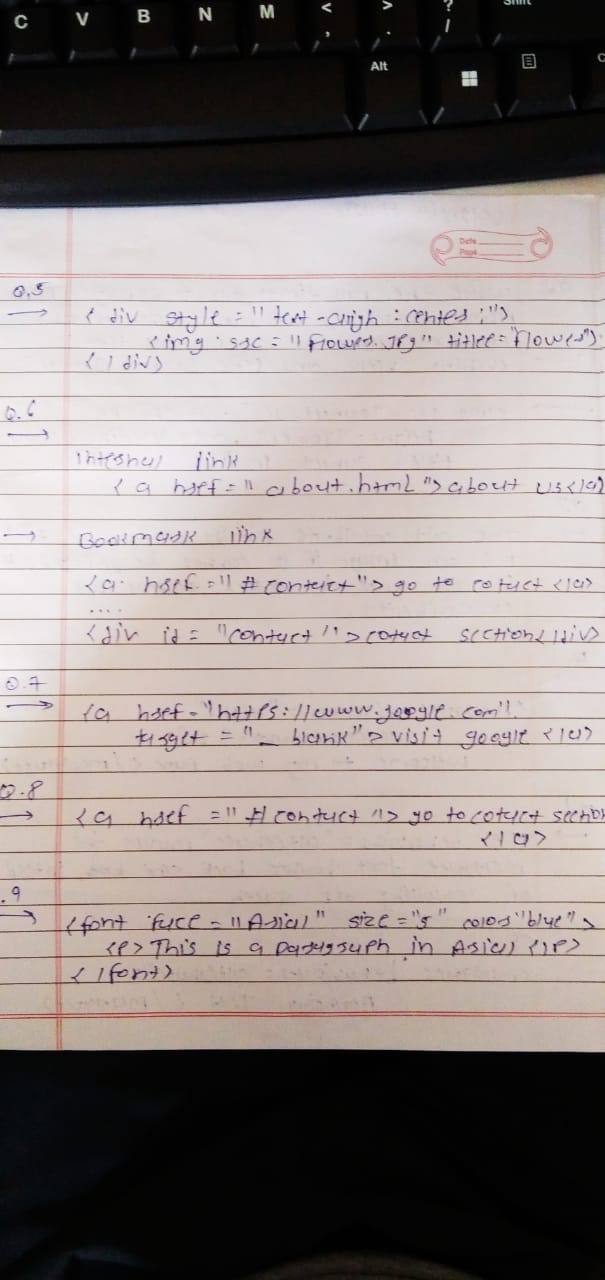 C V B N M < , > . ? / Shift
Alt
Date
Page
Q.5
→ < div style = "text-align : center ;">
<img src = "flower.jpg" title = "flower">
</div>
Q.6
→
Internal link
< a href = "about.html"> about us </a>
→ Bookmark link
<a href = "#contact"> go to cotact </a>
....
<div id = "contact"> cotact section </div>
Q.7
→ <a href = "https://www.google.com"
target = "_blank"> visit google </a>
Q.8
→ <a href = "#contact"> go to cotact section
</a>
.9
→ <font face = "Arial" size = "5" color "blue">
<p> This is a paragraph in Arial </p>
</font>